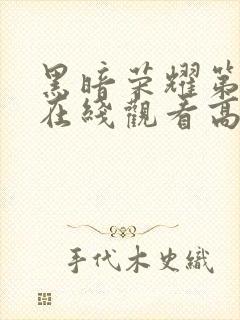 黑暗荣耀第
在綫觀看高
手代木史織